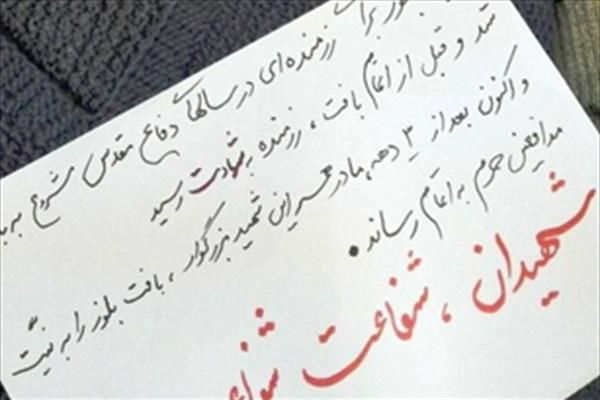 رزمنده‌ای در سالهای دفاع مقدس شروع به
شد و قبل از اتمام بافت، رزمنده به شهادت رسید
و اکنون بعد از ۳ دهه، مادر همسر این شهید بزرگوار، بافت بلوز را به نیّت
مدافعین حرم به اتمام رساند.
شهیدان، شفاعت